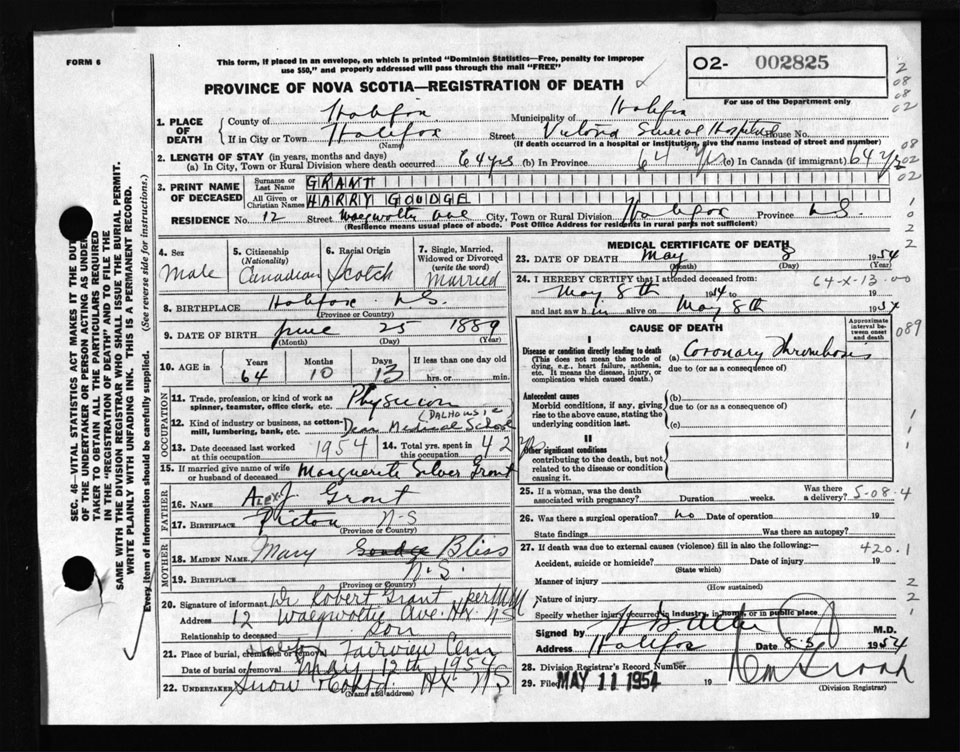 FORM 6
This form, if placed in an envelope, on which is printed "Dominion Statistics—Free, penalty for improper
use $50," and properly addressed will pass through the mail "FREE"
O2- 002825
For use of the Department only
PROVINCE OF NOVA SCOTIA—REGISTRATION OF DEATH
1. PLACE OF DEATH
County of Halifax Municipality of Halifax
If in City or Town Halifax Street Victoria General Hospital House No.
(Name) (If death occurred in a hospital or institution, give the name instead of street and number)
2. LENGTH OF STAY (in years, months and days)
(a) In City, Town or Rural Division where death occurred 64 yrs (b) In Province 64 yrs (c) In Canada (if immigrant) 64 yrs
3. PRINT NAME OF DECEASED
Surname or Last Name GRANT
All Given or Christian Names HARRY GOUDGE
RESIDENCE No. 12 Street Waegwoltic Ave City, Town or Rural Division Halifax Province N.S.
(Residence means usual place of abode. Post Office Address for residents in rural parts not sufficient)
4. Sex
Male
5. Citizenship (Nationality)
Canadian
6. Racial Origin
Scotch
7. Single, Married, Widowed or Divorced (write the word)
Married
8. BIRTHPLACE Halifax N.S.
(Province or Country)
9. DATE OF BIRTH June 25 1889
(Month) (Day) (Year)
10. AGE in Years Months Days If less than one day old
64 10 13 hrs. or min.
OCCUPATION
11. Trade, profession, or kind of work as spinner, teamster, office clerk, etc. Physician
12. Kind of industry or business, as cotton-mill, lumbering, bank, etc. Dean Medical School (DALHOUSIE
13. Date deceased last worked at this occupation 1954
14. Total yrs. spent in this occupation 42
15. If married give name of wife or husband of deceased Marguerite Silver Grant
FATHER
16. NAME Alex J Grant
17. BIRTHPLACE Pictou N-S
(Province or Country)
MOTHER
18. MAIDEN NAME Mary Goudge Bliss
19. BIRTHPLACE N.S.
(Province or Country)
20. Signature of informant Dr Robert Grant per
Address 12 Waegwoltic Ave. Hx NS
Relationship to deceased Son
21. Place of burial, cremation or removal Fairview Cem
Date of burial or removal May 12th 1954
22. UNDERTAKER Snow Hx NS
(Name and address)
MEDICAL CERTIFICATE OF DEATH
23. DATE OF DEATH May 8 1954
(Month) (Day) (Year)
24. I HEREBY CERTIFY that I attended deceased from: 64-X-13-00
May 8th 1954 to 19
and last saw h im alive on May 8th 1954
CAUSE OF DEATH
Approximate interval between onset and death
089
I
Disease or condition directly leading to death (a) Coronary Thrombosis
(This does not mean the mode of dying, e.g., heart failure, asthenia, etc. It means the disease, injury, or complication which caused death.)
due to (or as a consequence of)
Antecedent causes (b)
Morbid conditions, if any, giving rise to the above cause, stating the underlying condition last.
due to (or as a consequence of)
(c)
II
Other significant conditions
contributing to the death, but not related to the disease or condition causing it.
25. If a woman, was the death associated with pregnancy? Duration weeks. Was there a delivery? 5-08-4
26. Was there a surgical operation? no Date of operation 19
State findings Was there an autopsy?
27. If death was due to external causes (violence) fill in also the following:— 420.1
Accident, suicide or homicide? Date of injury 19
(State which)
Manner of injury
(How sustained)
Nature of injury
Specify whether injury occurred in industry, in home, or in public place
Signed by M.D.
Address Halifax Date 8-5 1954
28. Division Registrar's Record Number
29. Filed MAY 11 1954 19
(Division Registrar)
SEC. 46—VITAL STATISTICS ACT MAKES IT THE DUTY
OF THE UNDERTAKER OR PERSON ACTING AS UNDER-
TAKER TO OBTAIN ALL THE PARTICULARS REQUIRED
IN THE "REGISTRATION OF DEATH" AND TO FILE THE
SAME WITH THE DIVISION REGISTRAR WHO SHALL ISSUE THE BURIAL PERMIT.
WRITE PLAINLY WITH UNFADING INK. THIS IS A PERMANENT RECORD.
Every item of information should be carefully supplied. (See reverse side for instructions.)